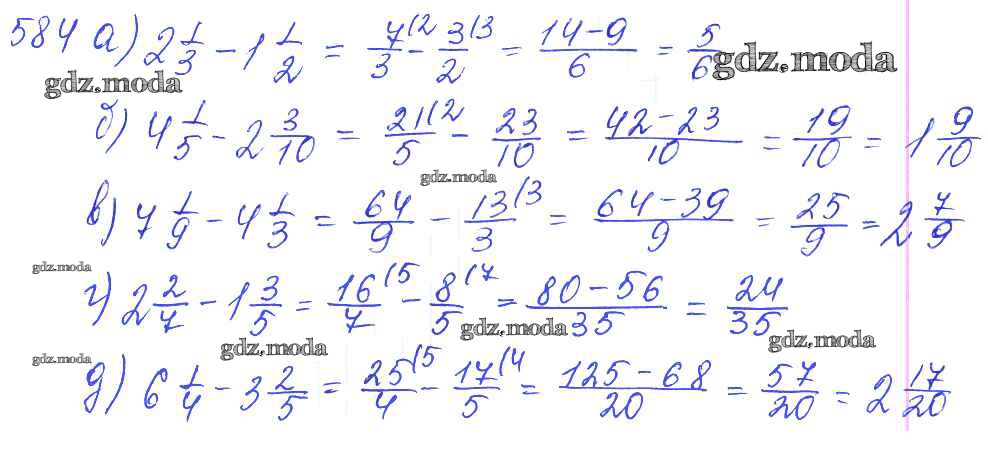 584 а) 2 1/3 - 1 1/2 = 7/3 (2 - 3/2 (3 = 14-9/6 = 5/6
gdz.moda
gdz.moda
б) 4 1/5 - 2 3/10 = 21/5 (2 - 23/10 = 42-23/10 = 19/10 = 1 9/10
gdz.moda
в) 7 1/9 - 4 1/3 = 64/9 - 13/3 (3 = 64-39/9 = 25/9 = 2 7/9
gdz.moda
г) 2 2/7 - 1 3/5 = 16/7 (5 - 8/5 (7 = 80-56/35 = 24/35
gdz.moda
gdz.moda
gdz.moda
gdz.moda
д) 6 1/4 - 3 2/5 = 25/4 (5 - 17/5 (4 = 125-68/20 = 57/20 = 2 17/20